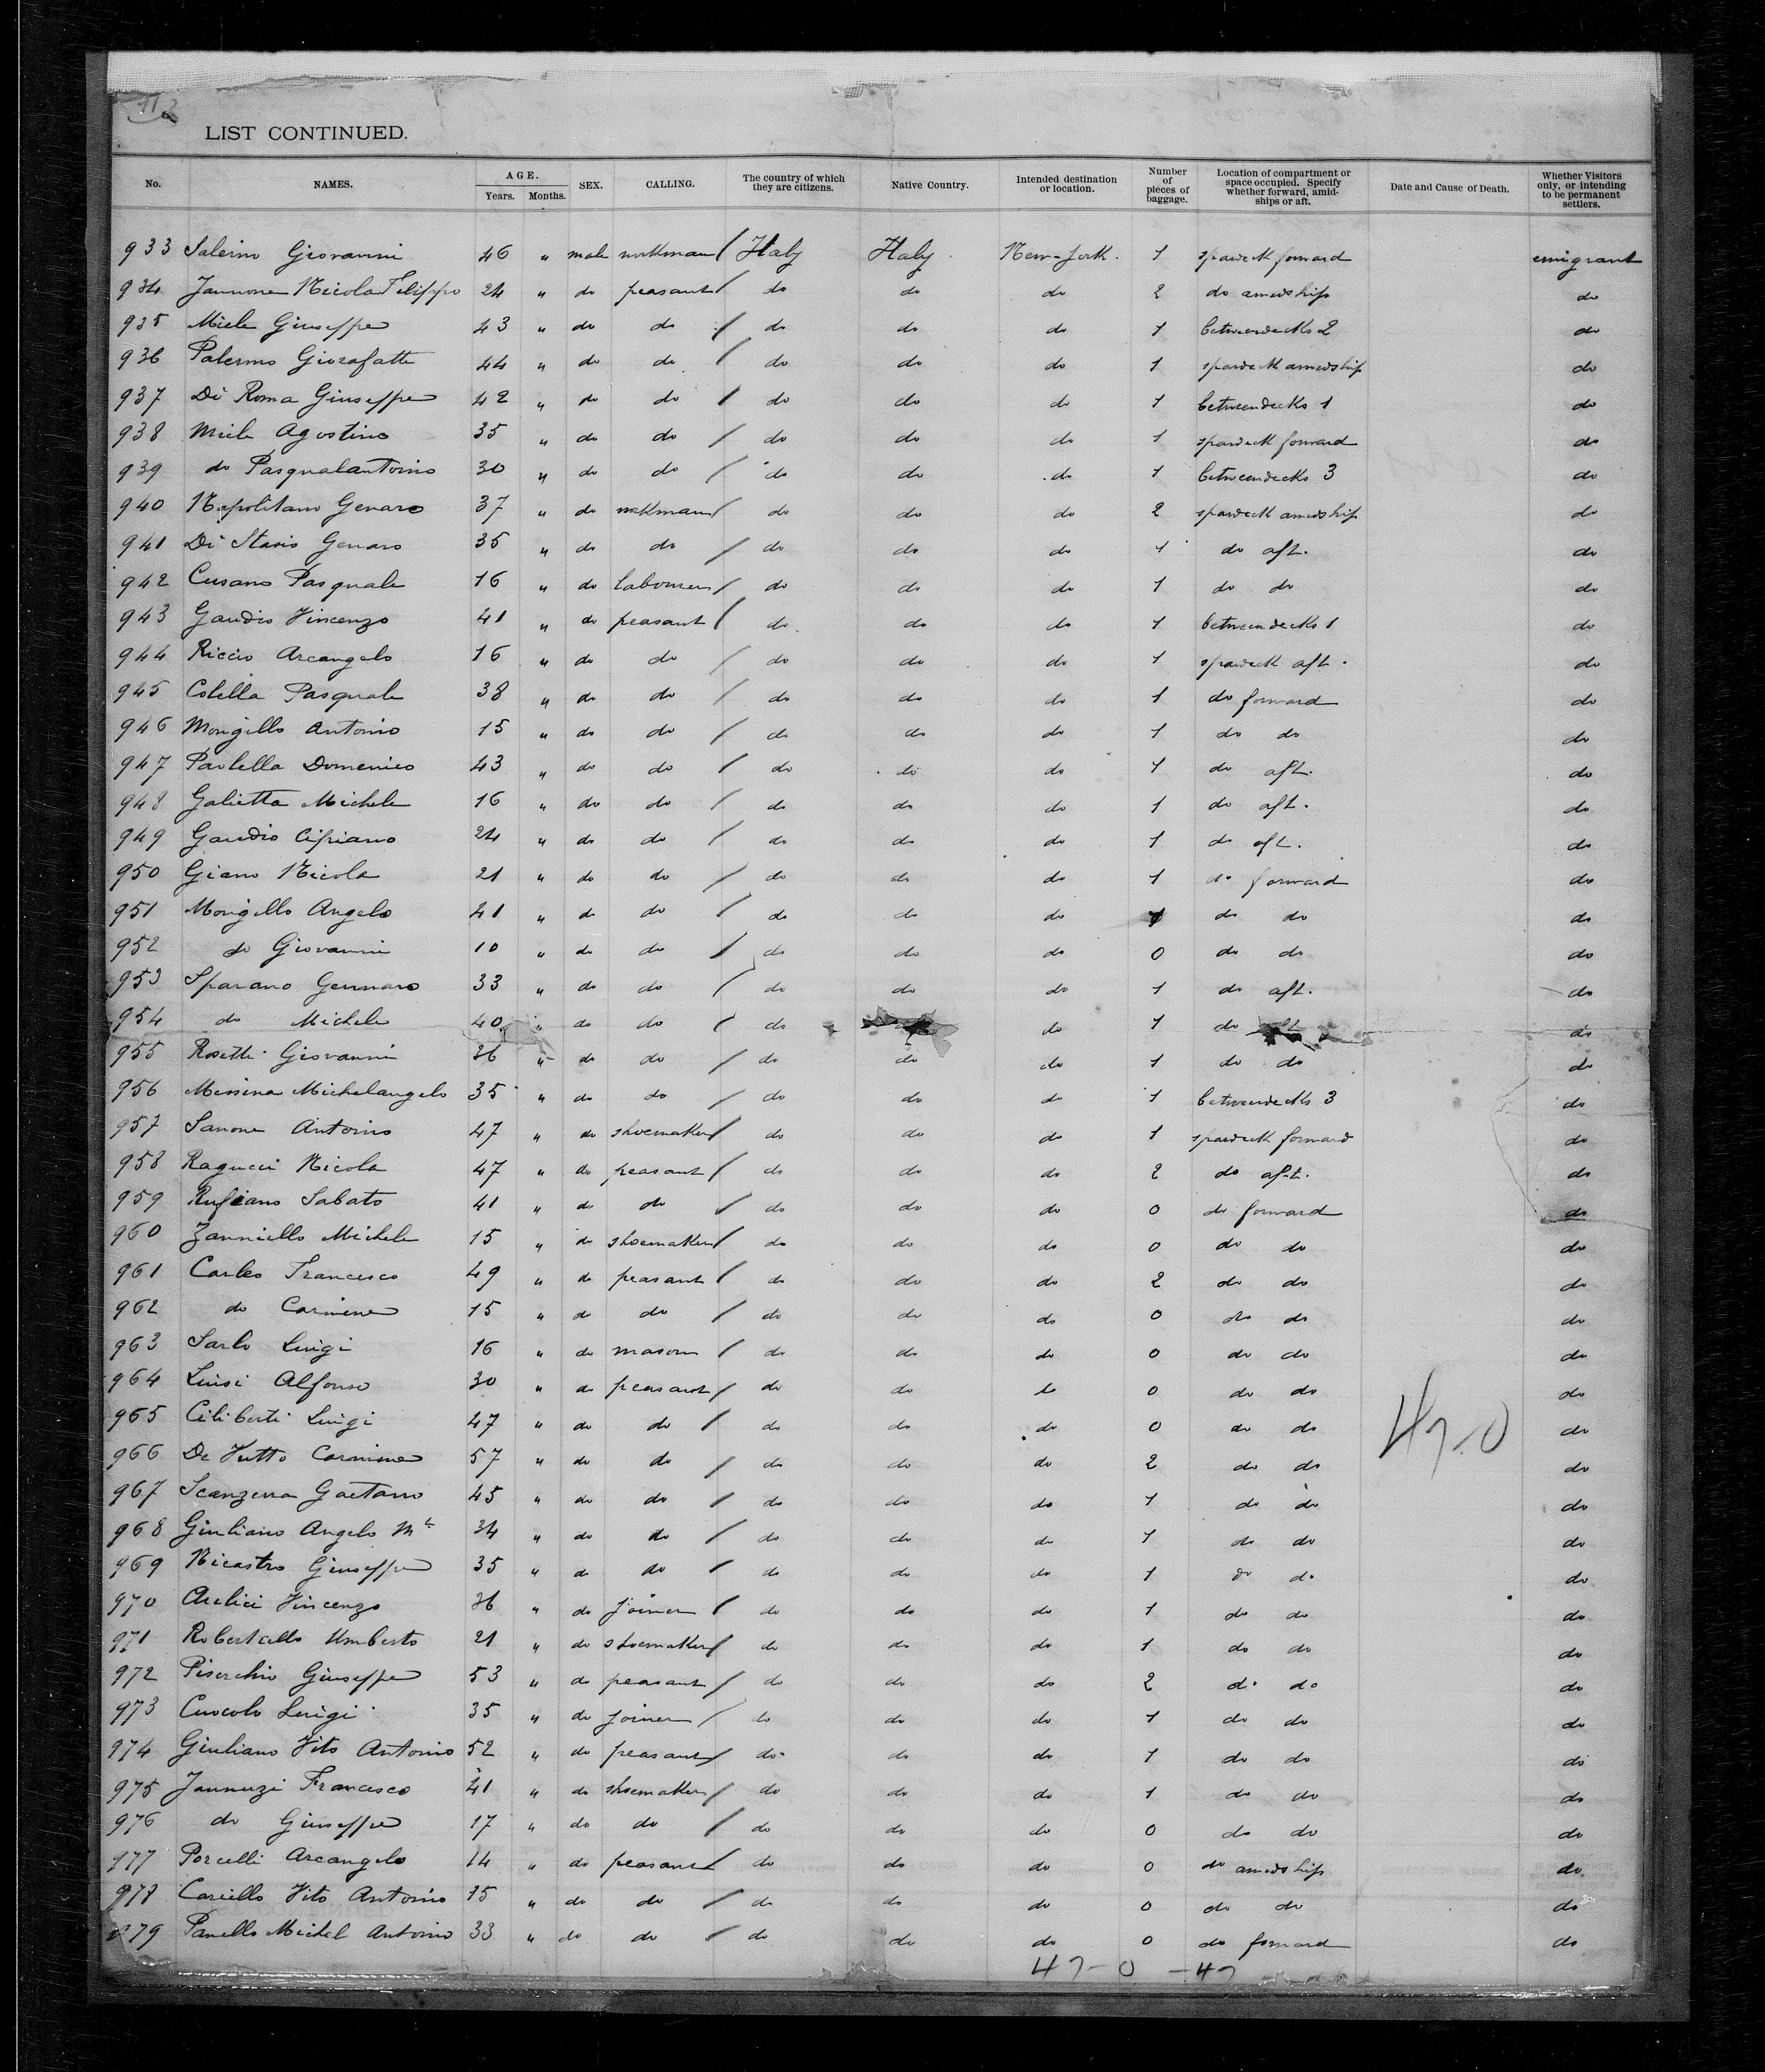 112
LIST CONTINUED.
No. NAMES. AGE. Years. Months. SEX. CALLING. The country of which they are citizens. Native Country. Intended destination or location. Number of pieces of baggage. Location of compartment or space occupied. Specify whether forward, amidships or aft. Date and Cause of Death. Whether Visitors only, or intending to be permanent settlers.
933 Salerno Giovanni 46 " male workman / Italy Italy New-York. 1 spardeck forward emigrant
934 Jannone Nicola Felippo 24 " do peasant / do do do 2 do amidship do
935 Miele Giuseppe 43 " do do / do do do 1 betweendecks 2 do
936 Palermo Giosafatte 44 " do do / do do do 1 spardeck amidship do
937 Di Roma Giuseppe 42 " do do / do do do 1 betweendecks 1 do
938 Miele Agostino 35 " do do / do do do 1 spardeck forward do
939 do Pasqualantonio 30 " do do / do do do 1 betweendecks 3 do
940 Napolitano Genaro 37 " do workman / do do do 2 spardeck amidship do
941 Di Stasio Genaro 35 " do do / do do do 1 do aft. do
942 Cusano Pasquale 16 " do labourer / do do do 1 do do do
943 Gaudio Vincenzo 41 " do peasant / do do do 1 betweendecks 1 do
944 Riccio Arcangelo 16 " do do / do do do 1 spardeck aft. do
945 Colella Pasquale 38 " do do / do do do 1 do forward do
946 Mongillo Antonio 15 " do do / do do do 1 do do do
947 Paolella Domenico 43 " do do / do do do 1 do aft. do
948 Galietta Michele 16 " do do / do do do 1 do aft. do
949 Gaudio Cipriano 24 " do do / do do do 1 do aft. do
950 Giano Nicola 21 " do do / do do do 1 do forward do
951 Mongillo Angelo 41 " do do / do do do 1 do do do
952 do Giovanni 10 " do do / do do do 0 do do do
953 Sparano Gennaro 33 " do do / do do do 1 do aft. do
954 do Michele 40 " do do / do do 1 do aft do
955 Rosetti Giovanni 36 " do do / do do do 1 do do do
956 Messina Michelangelo 35 " do do / do do do 1 betweendecks 3 do
957 Sanone Antonio 47 " do shoemaker / do do do 1 spardeck forward do
958 Ragucci Nicola 47 " do peasant / do do do 2 do aft. do
959 Rufiano Sabato 41 " do do / do do do 0 do forward do
960 Zanniello Michele 15 " do shoemaker / do do do 0 do do do
961 Carleo Francesco 49 " do peasant / do do do 2 do do do
962 do Carmine 15 " do do / do do do 0 do do do
963 Sarlo Luigi 16 " do mason / do do do 0 do do do
964 Luisi Alfonso 30 " do peasant / do do do 0 do do do
965 Ciliberti Luigi 47 " do do / do do do 0 do do 47-0 do
966 De Vutto Carmine 57 " do do / do do do 2 do do do
967 Scanzerra Gaetano 45 " do do / do do do 1 do do do
968 Giuliano Angelo Me 34 " do do / do do do 1 do do do
969 Nicastro Giuseppe 35 " do do / do do do 1 do do do
970 Vincenzo 36 " do joiner / do do do 1 do do do
971 Robertello Umberto 21 " do shoemaker / do do do 1 do do do
972 Piserchio Giuseppe 53 " do peasant / do do do 2 do do do
973 Cuocolo Luigi 35 " do joiner / do do do 1 do do do
974 Giuliano Vito Antonio 52 " do peasant / do do do 1 do do do
975 Jannuzi Francesco 41 " do shoemaker / do do do 1 do do do
976 do Giuseppe 17 " do do / do do do 0 do do do
977 Porcelli Arcangelo 14 " do peasant / do do do 0 do amidship do
978 Cariello Vito Antonio 15 " do do / do do do 0 do do do
979 Panello Michel Antonio 33 " do do / do do do 0 do forward do
47-0 -47